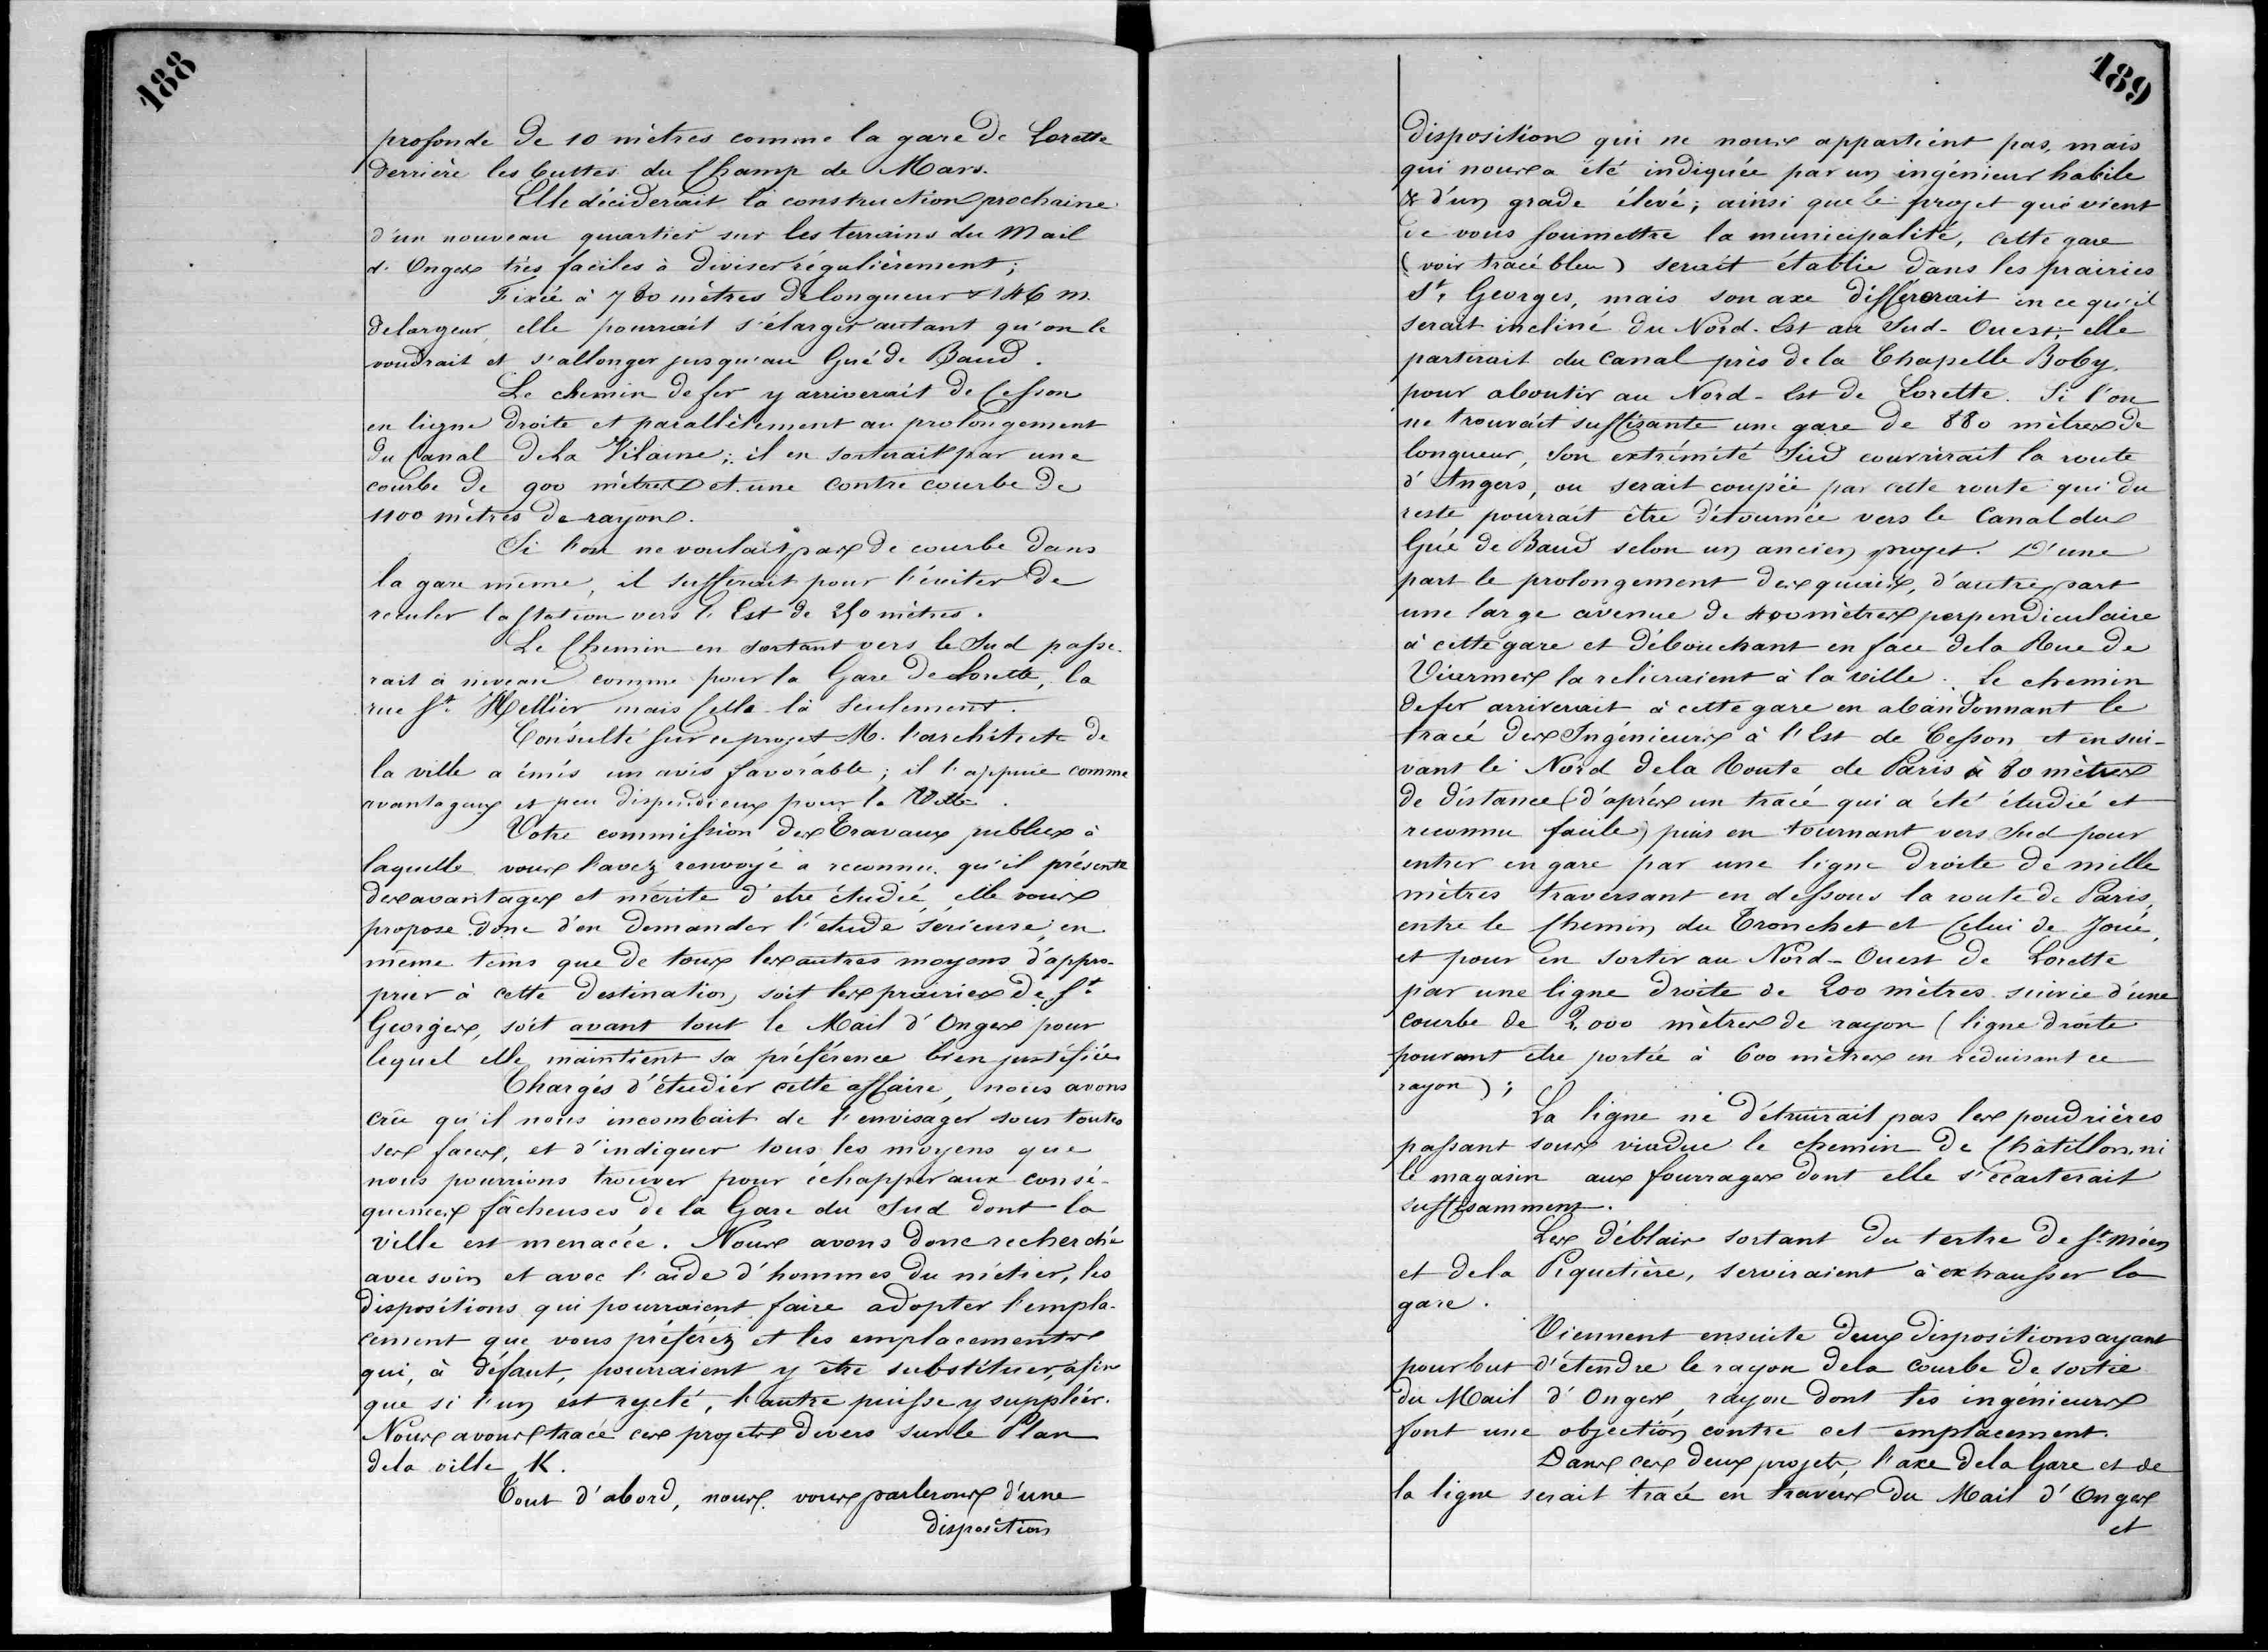 188
profonde de 10 mètres comme la gare de Lorette
derrière les buttes du Champ de Mars.
Elle déciderait la construction prochaine
d'un nouveau quartier sur les terrains du Mail
d'Onges très faciles à diviser régulièrement;
Fixée à 780 mètres de longueur & 146 m.
de largeur, elle pourrait s'élargir autant qu'on le
voudrait et s'allonger jusqu'au Gué de Baud.
Le chemin de fer y arriverait de Cesson
en ligne droite et parallèlement au prolongement
du Canal de la Vilaine; il en sortirait par une
courbe de 900 mètres et une contre courbe de
1100 mètres de rayon.
Si l'on ne voulait pas de courbe dans
la gare même, il suffirait pour l'éviter de
reculer la station vers l'Est de 250 mètres.
Le Chemin en sortant vers le Sud passe-
rait à niveau comme pour la Gare de Lorette, la
rue St. Hellier mais celle-là seulement.
Consulté sur ce projet M. l'architecte de
la ville a émis un avis favorable; il l'appuie comme
avantageux et peu dispendieux pour la Ville.
Votre commission des Travaux publics à
laquelle vous l'avez renvoyé a reconnu qu'il présente
des avantages et mérite d'etre étudié, elle vous
propose donc d'en demander l'étude sérieuse, en
même tems que de tous les autres moyens d'appro-
prier à cette destination, soit les prairies de St.
Georges, soit avant tout le Mail d'Onges pour
lequel elle maintient sa préférence bien justifiée
Chargés d'étudier cette affaire, nous avons
crû qu'il nous incombait de l'envisager sous toutes
ses faces, et d'indiquer tous les moyens que
nous pourrions trouver pour échapper aux consé-
quences fâcheuses de la Gare du Sud dont la
ville est menacée. Nous avons donc recherché
avec soin et avec l'aide d'hommes du métier, les
dispositions qui pourraient faire adopter l'empla-
cement que vous préférez et les emplacements
qui, à défaut, pourraient y être substituer, afin
que si l'un est rejeté, l'autre puisse y suppléer.
Nous avons tracé ces projets divers sur le Plan
de la ville K.
Tout d'abord, nous vous parlerons d'une
disposition
189
disposition qui ne nous appartient pas, mais
qui nous a été indiquée par un ingénieur habile
& d'un grade élevé; ainsi que le projet que vient
de vous soumettre la municipalité, cette gare
(voir tracé bleu) serait établie dans les prairies
St. Georges, mais son axe différerait en ce qu'il
serait incliné du Nord-Est au Sud-Ouest; elle
partirait du canal près de la Chapelle Boby,
pour aboutir au Nord-Est de Lorette. Si l'on
ne trouvait suffisante une gare de 880 mètres de
longueur, son extrémité Sud couvrirait la route
d'Angers, ou serait coupée par cette route qui du
reste pourrait être détournée vers le Canal du
Gué de Baud selon un ancien projet. D'une
part le prolongement des quais, d'autre part
une large avenue de 400 mètres perpendiculaire
à cette gare et débouchant en face de la Rue de
Viarmes la relieraient à la ville. Le chemin
de fer arriverait à cette gare en abandonnant le
tracé des Ingénieurs à l'Est de Cesson et en sui-
vant le Nord de la Route de Paris à 80 mètres
de distance (d'après un tracé qui a été étudié et
reconnu facile) puis en tournant vers Sud pour
entrer en gare par une ligne droite de mille
mètres traversant en dessous la route de Paris,
entre le Chemin du Tronchet et Celui de Joué,
et pour en sortir au Nord-Ouest de Lorette
par une ligne droite de 200 mètres suivie d'une
courbe de 2,000 mètres de rayon (ligne droite
pouvant être portée à 600 mètres en réduisant ce
rayon);
La ligne ne détruirait pas les poudrières
passant sous viaduc le chemin de Châtillon, ni
le magasin aux fourrages dont elle s'écarterait
suffisamment.
Les déblais sortant du tertre de St. Méen
et de la Piquetière, serviraient à exhausser la
gare.
Viennent ensuite deux dispositions ayant
pour but d'étendre le rayon de la courbe de sortie
du Mail d'Onges, rayon dont les ingénieurs
font une objection contre cet emplacement.
Dans ces deux projets, l'axe de la Gare et de
la ligne serait tracé en travers du Mail d'Onges
et